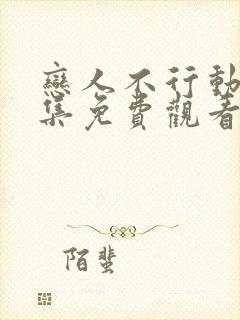 戀人不行動
集免費觀看
陌蜚